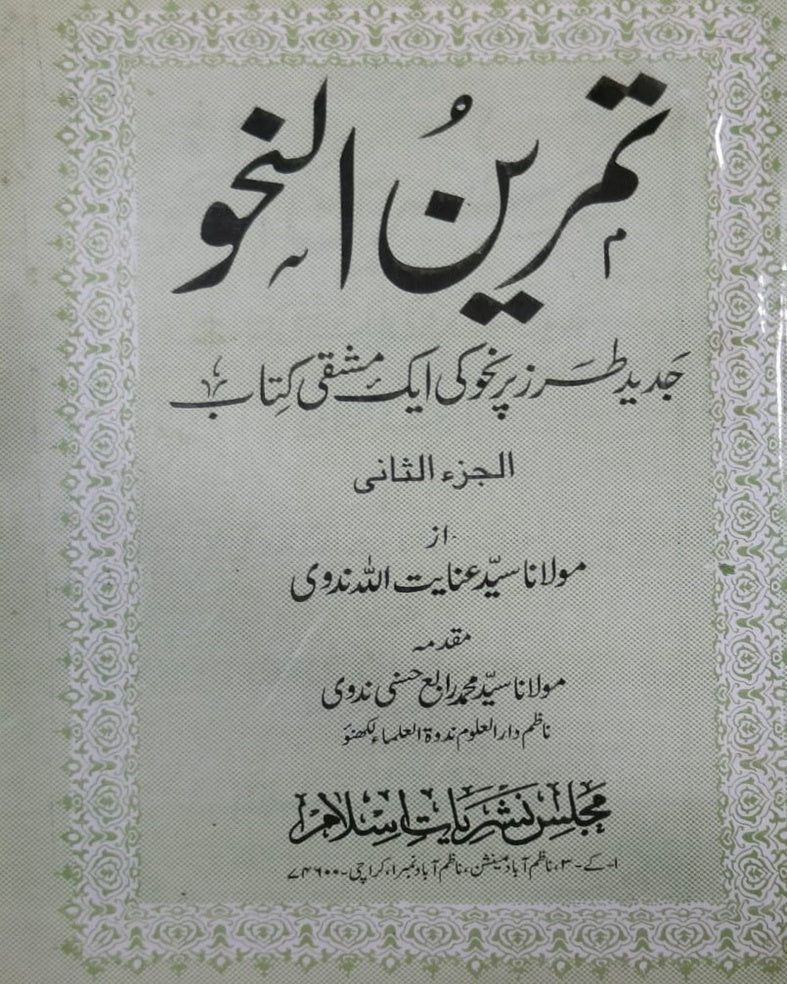 تمرینُ النحو
جدید طرز پر نحو کی ایک مشقی کتاب
الجزء الثانی
از
مولانا سیّد عنایت اللہ ندوی
مقدمہ
مولانا سیّد محمد رابع حسنی ندوی
ناظم دارالعلوم ندوۃ العلماء لکھنؤ
مجلس نشریات اسلام
۱۔کے۔۳، ناظم آباد مینشن، ناظم آباد نمبر۱، کراچی۔۷۴۶۰۰